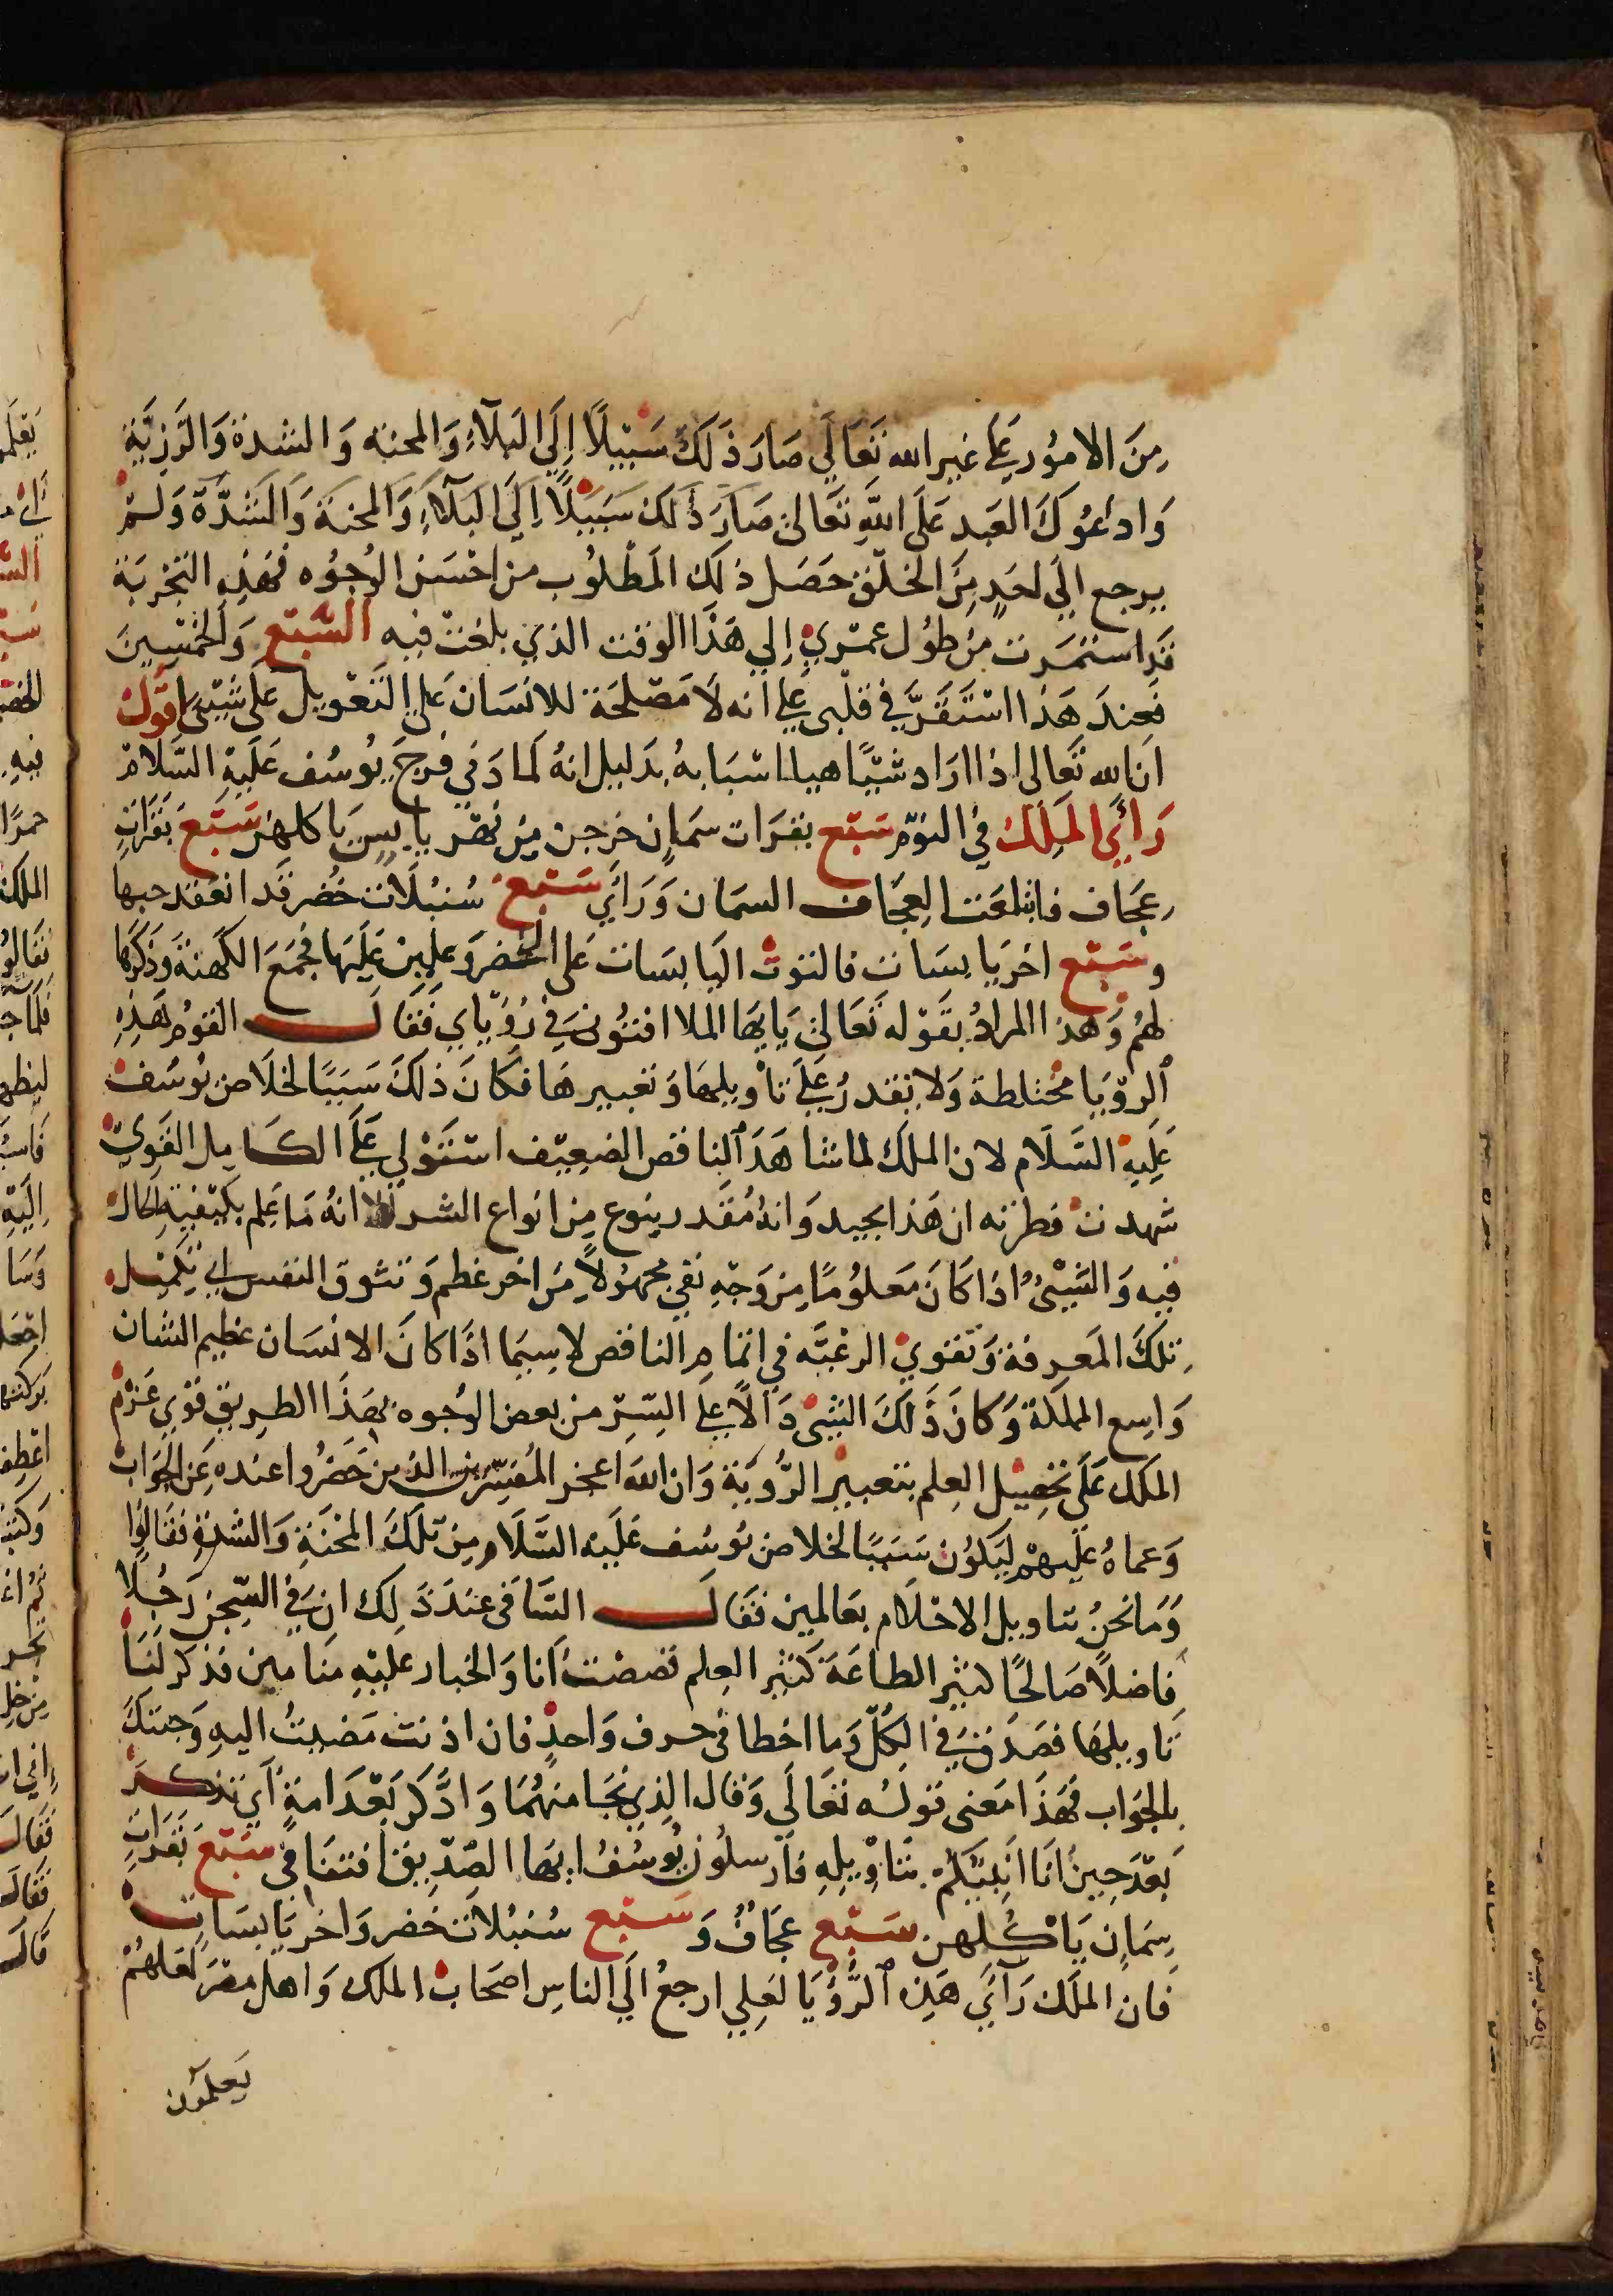 مِنَ الامُور عَلَي غير الله تَعَالَي صَارَ ذَلَكَ سَبيلًا إِلَي البَلآءِ وَالمحنه وَالشدة وَالرَزيَّة
وَاداعُوكَ العَبد عَلَى اللهِ تعَالى صَارَ ذَلكَ سَبيلًا اِلَي البَلآءِ وَالمحنَةَ وَالشدَّة وَلَمْ
يرجع الَي احَدٍ مِنَ الخلق حَصَل ذلكَ المَطلُوب من احْسَن الوجُوه فهَذِهِ التجربَة
قَد استمَرت مِن طول عمْري إِلي هَذا الوقت الذي بلغت فيه السَّبْع وَالخمْسِينَ
فَعِندَ هَذا اسْتَقَرَّ في قلْبى علي انه لَا مَصْلحَة للانسَان عَلي التَعْويل عَلى شَيْئ اقول
ان الله تَعَالى اذا ارَاد شيْئًا هيا اسْبَابهُ بدَليل انهُ لما دَني فرجَ يوسُف عَلَيْهِ السَّلَامْ
رَائَي المَلِكَ في النوْم سَبْع بقرَات سمَانٍ خرجن مِن نهْر يابس يَاكلهن سَبْع بقرَاتٍ
عِجَاف فابتلعَت العِجَاف السمَان وَرَأي سَبْع سُنبُلات خضر قد انعقد حبها
وسَبْع اخر يابسَات فالتوت اليَابسَات عَلى الخضر وَغلبن عَليهَا فجمَعَ الكَهنةَ وَذَكَرَهَا
لهُم وَهذا المرادُ بقَوْله تعَالى يَايهَا الملا افتوُنى في رُؤيَاي فَقَالَ القوْم هَذِهِ
الرؤيَا مختلطة وَلا نقدرُ عَلَي تأويلهَا وَتعبيرهَا فكَانَ ذلكَ سَبَبًا لخلاص يُوسُف
عَلَيهِ السَّلَام لان الملك لما شاهَدَ الناقص الضعِيف استَوْلي عَلَي الكَامِل القَوِيّ
شهدت فطرته ان هَذا بجيد وَانهُ مُقدر بنوع مِن انواع الشر الا انهُ مَا عَلم بكيْفيةِ الحَال
فيه وَالشَيْئُ اذا كَانَ مَعلُومًا مِن وَجهٍ بقي مجهُولًا مِنَ اخر عظم وَتشوق النفس الي تكميل
تلكَ المَعرفة وَتقوي الرغبَه في اتمام الناقص لاسِيمَا اذَا كانَ الانسَان عظيم الشان
وَاسِع المملكة وَكانَ ذَلكَ الشئ دَالًا علي السِّرّ من بعض الوجُوه بهَذَا الطريق قوي عَزم
الملك عَلَى تحصيل العلم بتعبير الرُّؤيَة وَان الله اعجز المُفسّرين الذين حَضَرُوا عنده عَن الجوَاب
وَعماهُ عَلَيهمْ لِيَكُون سَببًا لخلاص يُوسُف عَليْه السَّلَام مِن تلكَ المحْنَةِ وَالشدة فقالوا
وَمَا نحنُ بتاويل الاحْلَام بعَالمين فَقَالَ السَّاقى عندَ ذَلِك ان في السِّجن رَجُلًا
فاضلًا صَالحًا كثير الطاعَة كَثير العِلم قصصت انا وَالخباز عليْهِ منَامين فذكر لنَا
تاويلهَا فصدق في الكُلِّ وَما اخطا في حرف وَاحدٍ فان اذنت مَضيتُ اليهِ وَجئتكَ
بالجوَاب فهَذَا مَعنى قولُه تعَالَى وَقال الذِي نجَا منهُمَا وَادَّكَر بَعْدَ امةٍ اي تذكر
بَعْد حِين أنَا انَبِيَّكُم بتَأوِيْلِهِ فَأَرسلُون يُوسُفُ ايهَا الصِّدّيق افتنَا في سَبْع بَقَرَاتٍ
سِمَانٍ يَاكُلهن سَبْع عجَافٌ وَسَبْع سُنبُلاتٍ خضر وَاخر يَابسَاتٍ
فان الملك رَآيَ هَذِه الرُّؤيَا لعلي ارجعُ الَي الناسِ اصحَاب الملك وَاهل مصْر لَعَلهُمْ
يَعلمُون